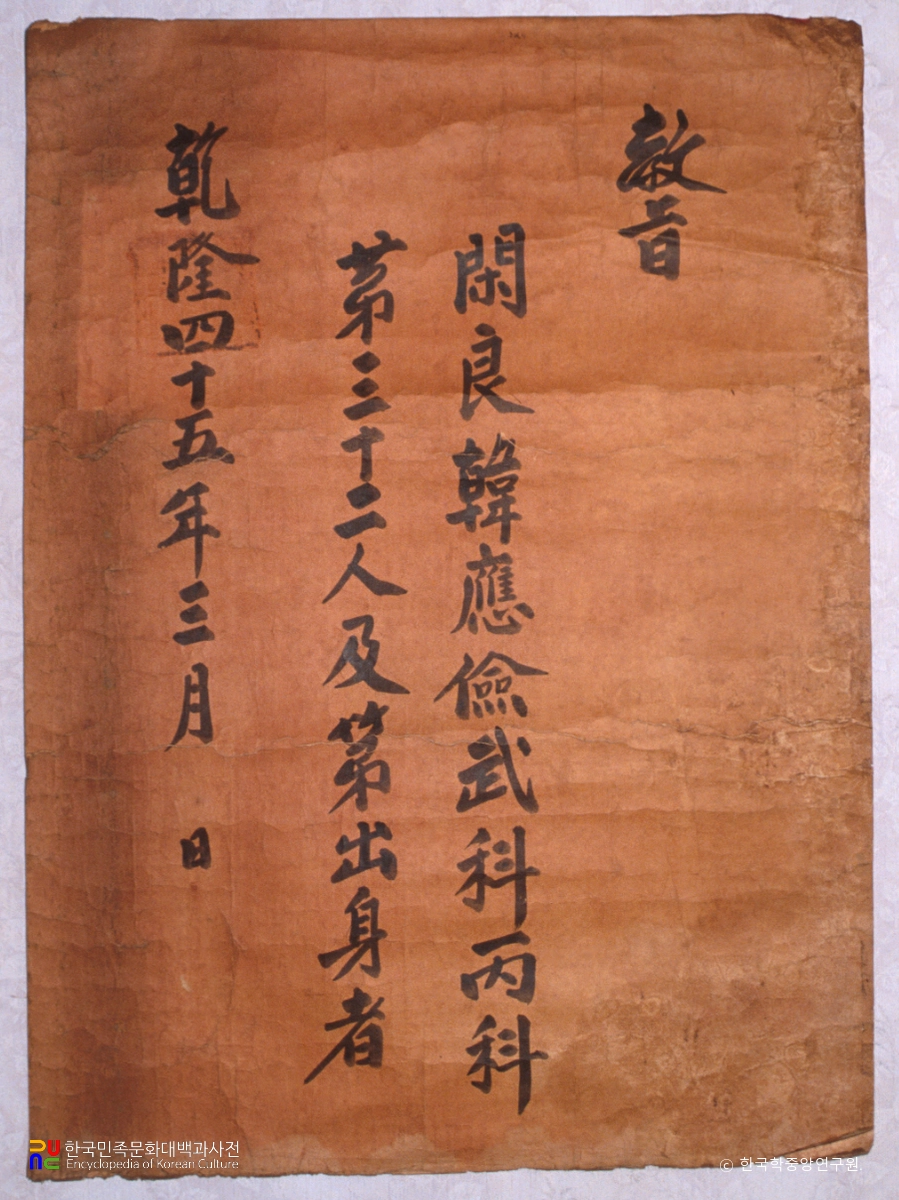 敎旨
閑良韓應儉武科丙科
苐三十二人及第出身者
乾隆四十五年三月 日
한국민족문화대백과사전
Encyclopedia of Korean Culture
© 한국학중앙연구원